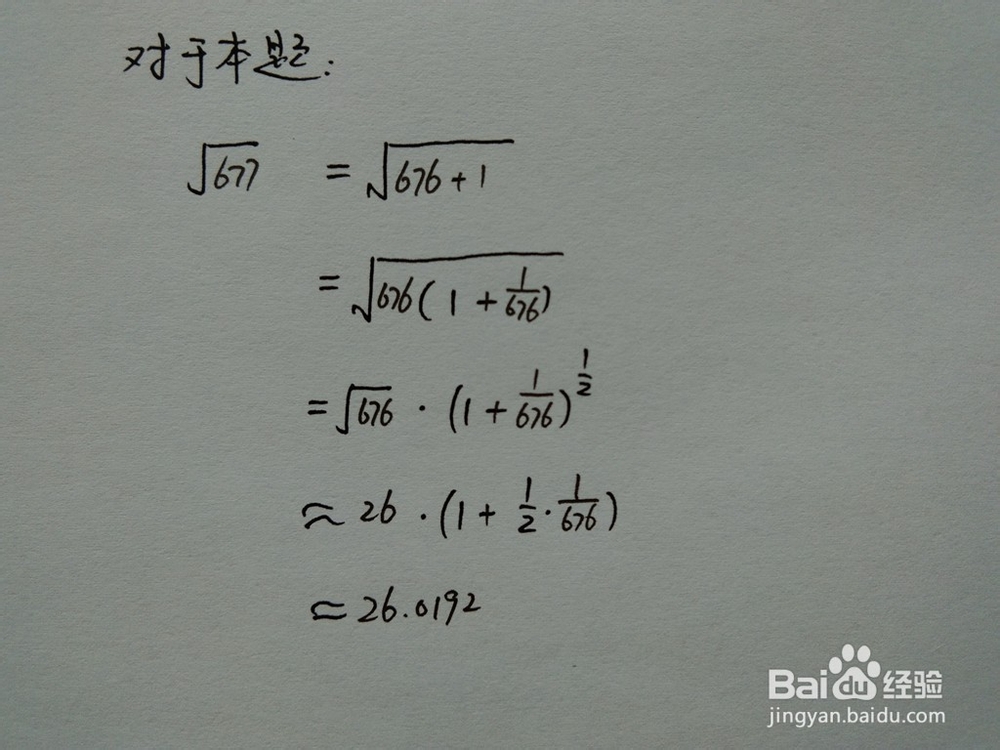 对于本题:
√677 = √(676+1)
= √(676(1+1/676))
= √676 · (1+1/676)^(1/2)
≈ 26 · (1+1/2·1/676)
≈ 26.0192
Baidu经验
jingyan.baidu.com